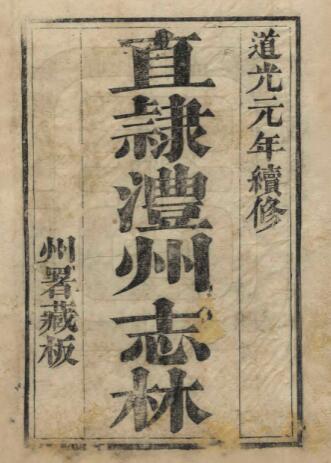 道光元年續修
直隷澧州志林
州署藏板